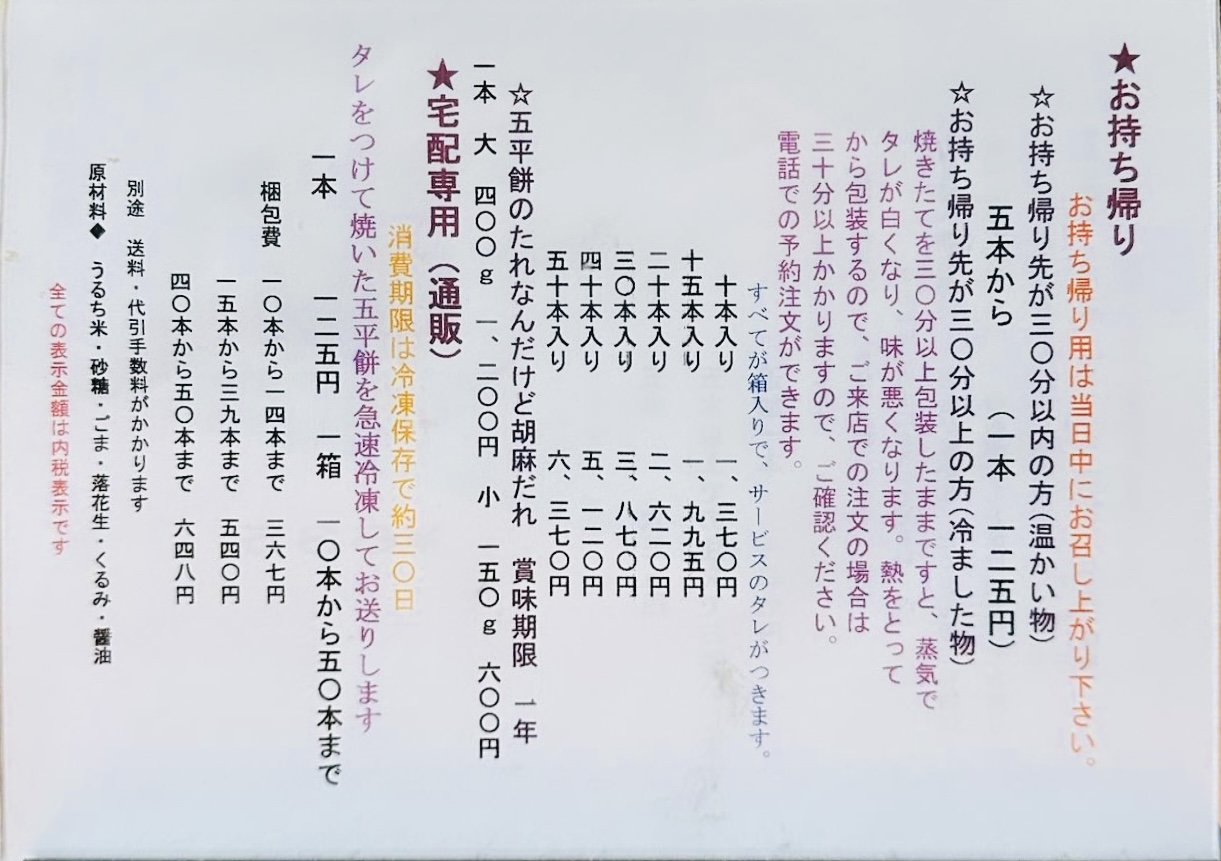 ★お持ち帰り
お持ち帰り用は当日中にお召し上がり下さい。
☆お持ち帰り先が三〇分以内の方（温かい物）
五本から （一本 一二五円）
☆お持ち帰り先が三〇分以上の方（冷ました物）
焼きたてを三〇分以上包装したままですと、蒸気で
タレが白くなり、味が悪くなります。熱をとって
から包装するので、ご来店での注文の場合は
三十分以上かかりますので、ご確認ください。
電話での予約注文ができます。
すべてが箱入りで、サービスのタレがつきます。
十本入り 一、三七〇円
十五本入り 一、九九五円
二十本入り 二、六二〇円
三〇本入り 三、八七〇円
四十本入り 五、一二〇円
五十本入り 六、三七〇円
☆五平餅のたれなんだけど胡麻だれ 賞味期限 一年
一本 大 四〇〇ｇ 一、二〇〇円 小 一五〇ｇ 六〇〇円
★宅配専用（通販）
消費期限は冷凍保存で約三〇日
タレをつけて焼いた五平餅を急速冷凍してお送りします
一本 一二五円 一箱 一〇本から五〇本まで
梱包費 一〇本から一四本まで 三六七円
一五本から三九本まで 五四〇円
四〇本から五〇本まで 六四八円
別途 送料・代引手数料がかかります
原材料◆ うるち米・砂糖・ごま・落花生・くるみ・醤油
全ての表示金額は内税表示です